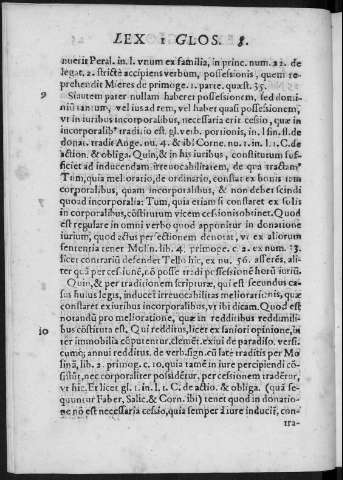 LEX 1 GLOS. 8.
nuerit Peral. in. l. vnum ex familia, in princ. num. 22. de
legat. 2. strictè accipiens verbum, possessionis, quem re-
prehendit Mieres de primoge. 1. parte. quæst. 35.
9 Si autem pater nullam haberet possessionem, sed domi-
niũ tantum, vel ius ad rem, vel haber quasi possessionem,
vt in iuribus incorporalibus, necessaria erit cessio, quæ in
incorporalib⁹ traditio est. gl. verb. portionis, in. l. fin. ff. de
donat. tradit Ange. nu. 4. & ibi Corne. nu. 1. in. l. 1. C. de
action. & obliga. Quin, & in his iuribus, constitutum suf-
ficiet ad inducendam irreuocabilitatem, de qua tractam⁹
Tum, quia melioratio, de ordinario, constat ex bonis tam
corporalibus, quam incorporalibus, & non debet scindi
quoad incorporalia: Tum, quia etiam si constaret ex solis
in corporalibus, cõstitutum vicem cessionis obtinet. Quod
est regulare in omni verbo quod apponitur in donatione
iurium, quod actus perfectionem denotat, vt ex aliorum
sententia tenet Molin. lib. 4. primoge. c. 2. ex num. 13.
licet contrariũ defendet Tello hic, ex nu. 56. asserẽs, ali-
ter quã per cessionẽ, nõ posse tradi possessionẽ horũ iuriũ.
Quin, & per traditionem scripturæ, qui est secundus ca-
sus huius legis, inducet irreuocabilitas meliorationis, quæ
constaret ex iuribus incorporalibus, vt ibi dicam. Quod est
notandũ pro melioratione, quæ in redditibus reddimili-
10 bus cõstituta est, Qui redditus, licet ex saniori opinione, in
ter immobilia cõputentur, clemẽt. exiui de paradiso. versi.
cumq; annui redditus. de verb. sign. cũ late traditis per Mo
linã, lib. 2. primog. c. 10. quia tamẽ in iure percipiendi cõ-
sistũt, nec corporaliter possidẽtur, per cessionem tradẽtur,
vt hic. Et licet gl. 1. in. l. 1. C. de actio. & obliga. (quã se-
quuntur Faber, Salic. & Corn. ibi) tenet quod in donatio-
ne nõ est necessaria cessio, quia semper à iure inducit͛, con-
tra-